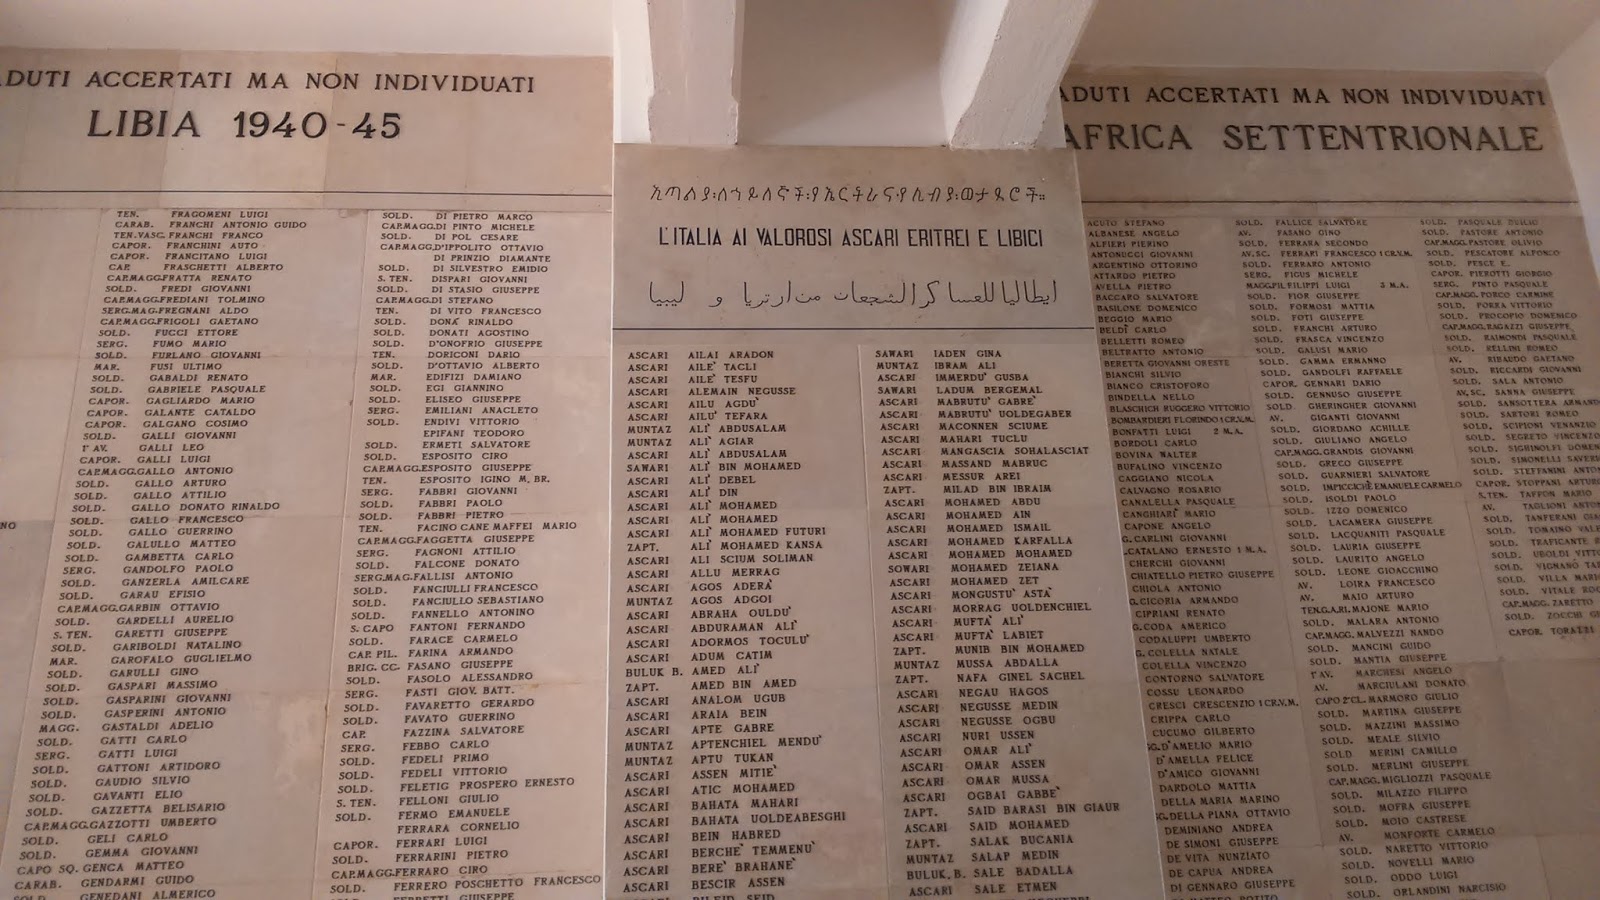 ADUTI ACCERTATI MA NON INDIVIDUATI
LIBIA 1940-45
TEN. FRAGOMENI LUIGI
CARAB. FRANCHI ANTONIO GUIDO
TEN.VASC. FRANCHI FRANCO
CAPOR. FRANCHINI AUTO
CAPOR. FRANCITANO LUIGI
CAP. FRASCHETTI ALBERTO
CAP.MAGG.FRATTA RENATO
SOLD. FREDI GIOVANNI
CAP.MAGG.FREDIANI TOLMINO
SERG.MAG.FREGNANI ALDO
CAP.MAGG.FRIGOLI GAETANO
SOLD. FUCCI ETTORE
SERG. FUMO MARIO
SOLD. FURLANO GIOVANNI
MAR. FUSI ULTIMO
SOLD. GABALDI RENATO
SOLD. GABRIELE PASQUALE
CAPOR. GAGLIARDO MARIO
CAPOR. GALANTE CATALDO
CAPOR. GALGANO COSIMO
SOLD. GALLI GIOVANNI
1° AV. GALLI LEO
CAPOR. GALLI LUIGI
CAP.MAGG.GALLO ANTONIO
SOLD. GALLO ARTURO
SOLD. GALLO ATTILIO
SOLD. GALLO DONATO RINALDO
SOLD. GALLO FRANCESCO
SOLD. GALLO GUERRINO
SOLD. GALULLO MATTEO
SOLD. GAMBETTA CARLO
SERG. GANDOLFO PAOLO
SOLD. GANZERLA AMILCARE
SOLD. GARAU EFISIO
CAP.MAGG.GARBIN OTTAVIO
SOLD. GARDELLI AURELIO
S. TEN. GARETTI GIUSEPPE
SOLD. GARIBOLDI NATALINO
MAR. GAROFALO GUGLIELMO
SOLD. GARULLI GINO
SOLD. GASPARI MASSIMO
SOLD. GASPARINI GIOVANNI
SOLD. GASPERINI ANTONIO
MAGG. GASTALDI ADELIO
SOLD. GATTI CARLO
SERG. GATTI LUIGI
SOLD. GATTONI ARTIDORO
SOLD. GAUDIO SILVIO
SOLD. GAVANTI ELIO
SOLD. GAZZETTA BELISARIO
CAP.MAGG.GAZZOTTI UMBERTO
SOLD. GELI CARLO
SOLD. GEMMA GIOVANNI
CAPO SQ. GENCA MATTEO
CARAB. GENDARMI GUIDO
SOLD. GENEDANI ALMERICO
NO
SOLD. DI PIETRO MARCO
CAP.MAGG.DI PINTO MICHELE
SOLD. DI POL CESARE
CAP.MAGG.D'IPPOLITO OTTAVIO
DI PRINZIO DIAMANTE
SOLD. DI SILVESTRO EMIDIO
S. TEN. DISPARI GIOVANNI
SOLD. DI STASIO GIUSEPPE
CAP.MAGG.DI STEFANO
TEN. DI VITO FRANCESCO
SOLD. DONA' RINALDO
SOLD. DONATI AGOSTINO
SOLD. D'ONOFRIO GIUSEPPE
TEN. DORICONI DARIO
SOLD. D'OTTAVIO ALBERTO
MAR. EDIFIZI DAMIANO
SOLD. EGI GIANNINO
SOLD. ELISEO GIUSEPPE
SERG. EMILIANI ANACLETO
SOLD. ENDIVI VITTORIO
EPIFANI TEODORO
SOLD. ERMETI SALVATORE
SOLD. ESPOSITO CIRO
CAP.MAGG.ESPOSITO GIUSEPPE
TEN. ESPOSITO IGINO M. BR.
SERG. FABBRI GIOVANNI
SOLD. FABBRI PAOLO
SOLD. FABBRI PIETRO
TEN. FACINO CANE MAFFEI MARIO
CAP.MAGG.FAGGETTA GIUSEPPE
SERG. FAGNONI ATTILIO
SOLD. FALCONE DONATO
SERG.MAG.FALLISI ANTONIO
SOLD. FANCIULLI FRANCESCO
SOLD. FANCIULLO SEBASTIANO
SOLD. FANNELLO ANTONINO
S. CAPO FANTONI FERNANDO
SOLD. FARACE CARMELO
CAP. PIL. FARINA ARMANDO
BRIG. CC. FASANO GIUSEPPE
SOLD. FASOLO ALESSANDRO
SERG. FASTI GIOV. BATT.
SOLD. FAVARETTO GERARDO
SOLD. FAVATO GUERRINO
CAP. FAZZINA SALVATORE
SERG. FEBBO CARLO
SOLD. FEDELI PRIMO
SOLD. FEDELI VITTORIO
SOLD. FELETIG PROSPERO ERNESTO
S. TEN. FELLONI GIULIO
SOLD. FERMO EMANUELE
FERRARA CORNELIO
CAPOR. FERRARI LUIGI
SOLD. FERRARINI PIETRO
CAP.MAGG.FERRARO CIRO
SOLD. FERRERO POSCHETTO FRANCESCO
FERRETTI GIUSEPPE
ኢጣልያ፡ለኀይለኞች፡የኤርትራና፡የሊብያ፡ወታደሮች።
L'ITALIA AI VALOROSI ASCARI ERITREI E LIBICI
ايطاليا للعساكر الشجعات من ارتريا و ليبيا
ASCARI AILAI ARADON
ASCARI AILE' TACLI
ASCARI AILE' TESFU
ASCARI ALEMAIN NEGUSSE
ASCARI AILU AGDU'
ASCARI AILU' TEFARA
MUNTAZ ALI' ABDUSALAM
MUNTAZ ALI' AGIAR
ASCARI ALI' ABDUSALAM
SAWARI ALI' BIN MOHAMED
ASCARI ALI' DEBEL
ASCARI ALI' DIN
ASCARI ALI' MOHAMED
ASCARI ALI' MOHAMED
ASCARI ALI' MOHAMED FUTURI
ZAPT. ALI' MOHAMED KANSA
ASCARI ALI SCIUM SOLIMAN
ASCARI ALLU MERRAG
ASCARI AGOS ADERA'
MUNTAZ AGOS ADGOI
ASCARI ABRAHA OULDU'
ASCARI ABDURAMAN ALI'
ASCARI ADORMOS TOCULU'
ASCARI ADUM CATIM
BULUK B. AMED ALI'
ZAPT. AMED BIN AMED
ASCARI ANALOM UGUB
ASCARI ARAIA BEIN
ASCARI APTE GABRE
MUNTAZ APTENCHIEL MENDU'
MUNTAZ APTU TUKAN
ASCARI ASSEN MITIE'
ASCARI ATIC MOHAMED
ASCARI BAHATA MAHARI
ASCARI BAHATA UOLDEABESGHI
ASCARI BEIN HABRED
ASCARI BERCHE' TEMMENU'
ASCARI BERE' BRAHANE'
ASCARI BESCIR ASSEN
SAWARI IADEN GINA
MUNTAZ IBRAM ALI
ASCARI IMMERDU' GUSBA
SAWARI LADUM BERGEMAL
ASCARI MABRUTU' GABRE'
ASCARI MABRUTU' UOLDEGABER
ASCARI MACONNEN SCIUME
ASCARI MAHARI TUCLU
ASCARI MANGASCIA SOHALASCIAT
ASCARI MASSAND MABRUC
ASCARI MESSUR AREI
ZAPT. MILAD BIN IBRAIM
ASCARI MOHAMED ABDU
ASCARI MOHAMED AIN
ASCARI MOHAMED ISMAIL
ASCARI MOHAMED KARFALLA
ASCARI MOHAMED MOHAMED
SOWARI MOHAMED ZEIANA
ASCARI MOHAMED ZET
ASCARI MONGUSTU' ASTA'
ASCARI MORRAG UOLDENCHIEL
ASCARI MUFTA' ALI'
ASCARI MUFTA' LABIET
ZAPT. MUNIB BIN MOHAMED
MUNTAZ MUSSA ABDALLA
ZAPT. NAFA GINEL SACHEL
ASCARI NEGAU HAGOS
ASCARI NEGUSSE MEDIN
ASCARI NEGUSSE OGBU
ASCARI NURI USSEN
ASCARI OMAR ALI'
ASCARI OMAR ASSEN
ASCARI OMAR MUSSA
ASCARI OGBAI GABBE'
ZAPT. SAID BARASI BIN GIAUR
ASCARI SAID MOHAMED
ZAPT. SALAK BUCANIA
MUNTAZ SALAP MEDIN
BULUK. B. SALE BADALLA
ASCARI SALE ETMEN
ADUTI ACCERTATI MA NON INDIVIDUATI
AFRICA SETTENTRIONALE
ACUTO STEFANO
ALBANESE ANGELO
ALFIERI PIERINO
ANTONUCCI GIOVANNI
ARGENTINO OTTORINO
ATTARDO PIETRO
AVELLA PIETRO
BACCARO SALVATORE
BASILONE DOMENICO
BEGGIO MARIO
BELDI' CARLO
BELLETTI ROMEO
BELTRATTO ANTONIO
BERETTA GIOVANNI ORESTE
BIANCHI SILVIO
BIANCO CRISTOFORO
BINDELLA NELLO
BLASCHICH RUGGERO VITTORIO
BOMBARDIERI FLORINDO 1 CR.V.M.
BONFATTI LUIGI 2 M.A.
BORDOLI CARLO
BOVINA WALTER
BUFALINO VINCENZO
CAGGIANO NICOLA
CALVAGNO ROSARIO
CANALELLA PASQUALE
CANGHIARI' MARIO
CAPONE ANGELO
G. CARLINI GIOVANNI
CATALANO ERNESTO 1 M.A.
CHERCHI GIOVANNI
CHIATELLO PIETRO GIUSEPPE
CHIOLA ANTONIO
G. CICORIA ARMANDO
CIPRIANI RENATO
G. CODA AMERICO
CODALUPPI UMBERTO
G. COLELLA NATALE
COLELLA VINCENZO
CONTORNO SALVATORE
COSSU LEONARDO
CRESCI CRESCENZIO 1 CR.V.M.
CRIPPA CARLO
CUCUMO GILBERTO
GG. D'AMELIO MARIO
D'AMELIA FELICE
D'AMICO GIOVANNI
DARDOLO MATTIA
DELLA MARIA MARINO
GG. DELLA PIANA OTTAVIO
DEMINIANO ANDREA
DE SIMONI GIUSEPPE
DE VITA NUNZIATO
DE CAPUA ANDREA
DI GENNARO GIUSEPPE
SOLD. FALLICE SALVATORE
AV. FASANO GINO
SOLD. FERRARA SECONDO
AV. SC. FERRARI FRANCESCO 1 CR.V.M.
SOLD. FERRARO ANTONIO
SERG. FIGUS MICHELE
MAGG.PIL FILIPPI LUIGI 3 M.A.
SOLD. FIOR GIUSEPPE
SOLD. FORMOSI MATTIA
SOLD. FOTI GIUSEPPE
SOLD. FRANCHI ARTURO
SOLD. FRASCA VINCENZO
SOLD. GALUSI MARIO
SOLD. GAMMA ERMANNO
SOLD. GANDOLFI RAFFAELE
CAPOR. GENNARI DARIO
SOLD. GENNUSO GIUSEPPE
SOLD. GHERINGHER GIOVANNI
AV. GIGANTI GIOVANNI
SOLD. GIORDANO ACHILLE
SOLD. GIULIANO ANGELO
CAP.MAGG. GRANDIS GIOVANNI
SOLD. GRECO GIUSEPPE
SOLD. GUARNIERI SALVATORE
SOLD. IMPICCICHÈ EMANUELE CARMELO
SOLD. ISOLDI PAOLO
SOLD. IZZO DOMENICO
SOLD. LACAMERA GIUSEPPE
SOLD. LACQUANITI PASQUALE
SOLD. LAURIA GIUSEPPE
SOLD. LAURITO ANGELO
SOLD. LEONE GIOACCHINO
AV. LOIRA FRANCESCO
AV. MAIO ARTURO
TEN.G.A.RI. MAJONE MARIO
SOLD. MALARA ANTONIO
CAP.MAGG. MALVEZZI NANDO
SOLD. MANCINI GUIDO
SOLD. MANTIA GIUSEPPE
1° AV. MARCHESI ANGELO
AV. MARCIULANI DONATO
CAPO 2°CL. MARMORO GIULIO
SOLD. MARTINA GIUSEPPE
SOLD. MAZZINI MASSIMO
SOLD. MEALE SILVIO
SOLD. MERINI CAMILLO
SOLD. MERLINI GIUSEPPE
CAP.MAGG. MIGLIOZZI PASQUALE
SOLD. MILAZZO FILIPPO
SOLD. MOFRA GIUSEPPE
SOLD. MOIO CASTRESE
AV. MONFORTE CARMELO
SOLD. NARETTO VITTORIO
SOLD. NOVELLI MARIO
SOLD. ODDO LUIGI
SOLD. ORLANDINI NARCISIO
SOLD. PASQUALE DUILIO
SOLD. PASTORE ANTONIO
CAP.MAGG. PASTORE OLIVIO
SOLD. PESCATORE ALFONCO
SOLD. PESCE E.
CAPOR. PIEROTTI GIORGIO
SERG. PINTO PASQUALE
CAP.MAGG. PORCO CARMINE
SOLD. PORRA VITTORIO
SOLD. PROCOPIO DOMENICO
CAP.MAGG. RAGAZZI GIUSEPPE
SOLD. RAIMONDI PASQUALE
SOLD. RELLINI ROMEO
AV. RIBAUDO GAETANO
SOLD. RICCARDI GIOVANNI
SOLD. SALA ANTONIO
AV. SC. SANNA GIUSEPPE
SOLD. SANSOTTERA ARMANDO
SOLD. SARTORI ROMEO
SOLD. SCIPIONI VENANZIO
SOLD. SEGRETO VINCENZO
SOLD. SIGHINOLFI DOMEN
SOLD. SIMONELLI SAVERI
SOLD. STEFFANINI ANTO
CAPOR. STOPPANI ARTURO
S. TEN. TAFFON MARIO
AV. TAGLIONI ANTON
SOLD. TANFERANI GIA
SOLD. TOMAINO VALE
SOLD. TRAFICANTE
SOLD. UBOLDI VITTO
SOLD. VIGNANO TA
SOLD. VILLA MARIO
SOLD. VITALE ROC
CAP.MAGG. ZARETTO
SOLD. ZOCCHI GI
CAPOR. TORAZZI